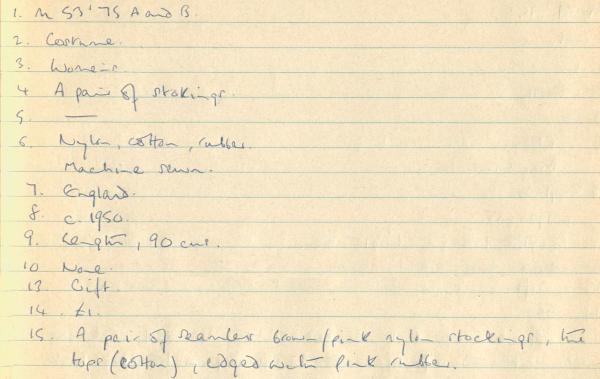 1. M 53 '75 A and B.
2. Costume.
3. Women's.
4 A pair of stockings.
5. —
6. Nylon, cotton, rubber.
Machine sewn.
7. England.
8. c. 1950.
9. Length, 90 cms.
10 None.
13 Gift.
14 £1.
15. A pair of seamless brown/pink nylon stockings, the
tops (cotton), edged with pink rubber.